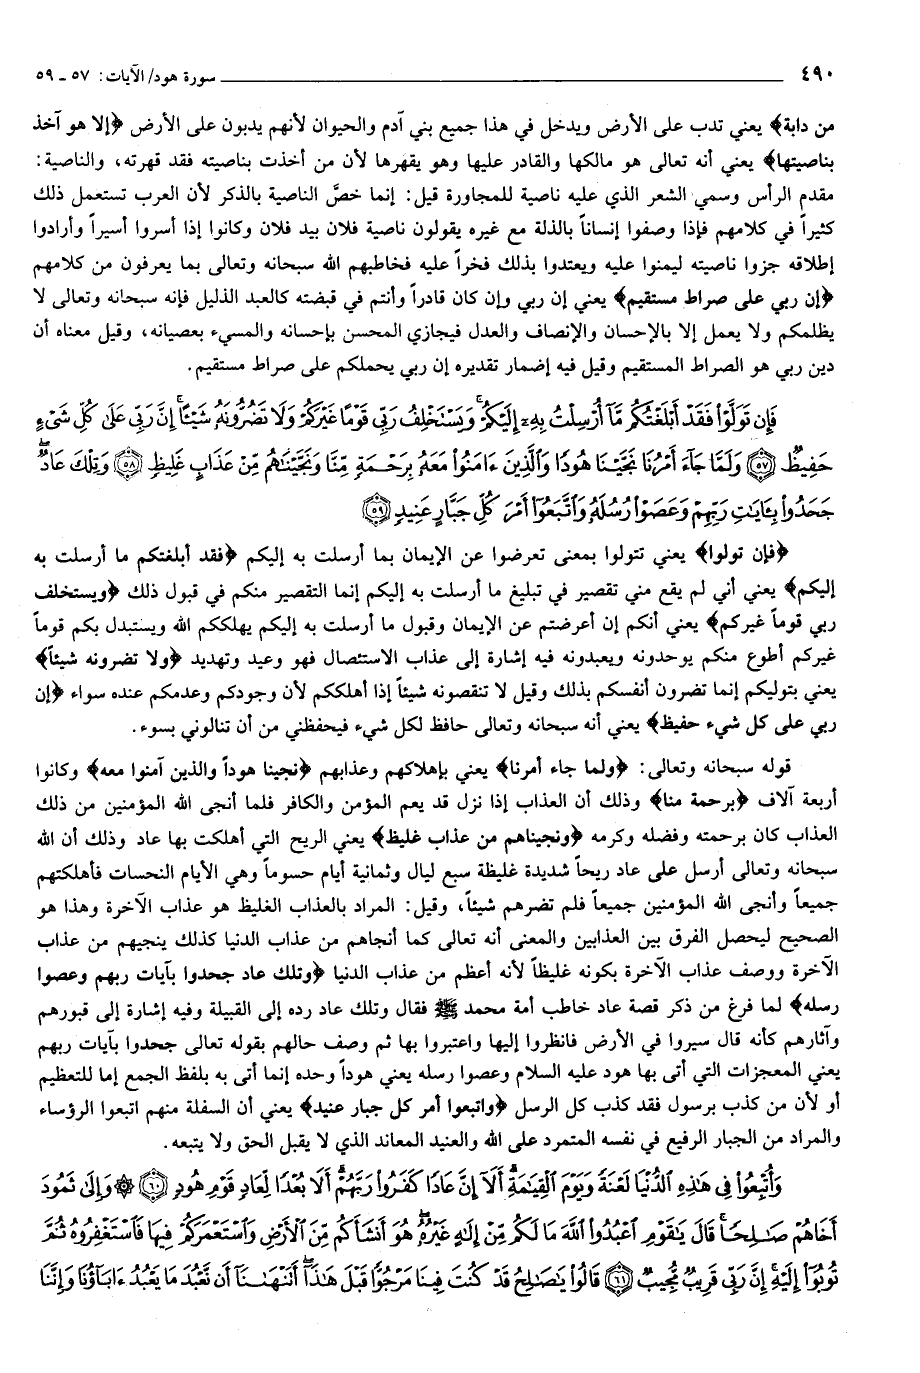 ٤٩٠ سورة هود/ الآيات: ٥٧ ـ ٥٩
من دابة﴾ يعني تدب على الأرض ويدخل في هذا جميع بني آدم والحيوان لأنهم يدبون على الأرض ﴿إلا هو آخذ
بناصيتها﴾ يعني أنه تعالى هو مالكها والقادر عليها وهو يقهرها لأن من أخذت بناصيته فقد قهرته، والناصية:
مقدم الرأس وسمي الشعر الذي عليه ناصية للمجاورة قيل: إنما خصَّ الناصية بالذكر لأن العرب تستعمل ذلك
كثيراً في كلامهم فإذا وصفوا إنساناً بالذلة مع غيره يقولون ناصية فلان بيد فلان وكانوا إذا أسروا أسيراً وأرادوا
إطلاقه جزوا ناصيته ليمنوا عليه ويعتدوا بذلك فخراً عليه فخاطبهم الله سبحانه وتعالى بما يعرفون من كلامهم
﴿إن ربي على صراط مستقيم﴾ يعني إن ربي وإن كان قادراً وأنتم في قبضته كالعبد الذليل فإنه سبحانه وتعالى لا
يظلمكم ولا يعمل إلا بالإحسان والإنصاف والعدل فيجازي المحسن بإحسانه والمسيء بعصيانه، وقيل معناه أن
دين ربي هو الصراط المستقيم وقيل فيه إضمار تقديره إن ربي يحملكم على صراط مستقيم.
فَإِن تَوَلَّوْا۟ فَقَدْ أَبْلَغْتُكُم مَّآ أُرْسِلْتُ بِهِۦٓ إِلَيْكُمْ ۚ وَيَسْتَخْلِفُ رَبِّى قَوْمًا غَيْرَكُمْ وَلَا تَضُرُّونَهُۥ شَيْـًٔا ۚ إِنَّ رَبِّى عَلَىٰ كُلِّ شَىْءٍ
حَفِيظٌ ﴿٥٧﴾ وَلَمَّا جَآءَ أَمْرُنَا نَجَّيْنَا هُودًا وَٱلَّذِينَ ءَامَنُوا۟ مَعَهُۥ بِرَحْمَةٍ مِّنَّا وَنَجَّيْنَٰهُم مِّنْ عَذَابٍ غَلِيظٍ ﴿٥٨﴾ وَتِلْكَ عَادٌ ۖ
جَحَدُوا۟ بِـَٔايَٰتِ رَبِّهِمْ وَعَصَوْا۟ رُسُلَهُۥ وَٱتَّبَعُوٓا۟ أَمْرَ كُلِّ جَبَّارٍ عَنِيدٍ ﴿٥٩﴾
﴿فإن تولوا﴾ يعني تتولوا بمعنى تعرضوا عن الإيمان بما أرسلت به إليكم ﴿فقد أبلغتكم ما أرسلت به
إليكم﴾ يعني أني لم يقع مني تقصير في تبليغ ما أرسلت به إليكم إنما التقصير منكم في قبول ذلك ﴿ويستخلف
ربي قوماً غيركم﴾ يعني أنكم إن أعرضتم عن الإيمان وقبول ما أرسلت به إليكم يهلككم الله ويستبدل بكم قوماً
غيركم أطوع منكم يوحدونه ويعبدونه فيه إشارة إلى عذاب الاستئصال فهو وعيد وتهديد ﴿ولا تضرونه شيئاً﴾
يعني بتوليكم إنما تضرون أنفسكم بذلك وقيل لا تنقصونه شيئاً إذا أهلككم لأن وجودكم وعدمكم عنده سواء ﴿إن
ربي على كل شيء حفيظ﴾ يعني أنه سبحانه وتعالى حافظ لكل شيء فيحفظني من أن تنالوني بسوء.
قوله سبحانه وتعالى: ﴿ولما جاء أمرنا﴾ يعني بإهلاكهم وعذابهم ﴿نجينا هوداً والذين آمنوا معه﴾ وكانوا
أربعة آلاف ﴿برحمة منا﴾ وذلك أن العذاب إذا نزل قد يعم المؤمن والكافر فلما أنجى الله المؤمنين من ذلك
العذاب كان برحمته وفضله وكرمه ﴿ونجيناهم من عذاب غليظ﴾ يعني الريح التي أهلكت بها عاد وذلك أن الله
سبحانه وتعالى أرسل على عاد ريحاً شديدة غليظة سبع ليال وثمانية أيام حسوماً وهي الأيام النحسات فأهلكتهم
جميعاً وأنجى الله المؤمنين جميعاً فلم تضرهم شيئاً، وقيل: المراد بالعذاب الغليظ هو عذاب الآخرة وهذا هو
الصحيح ليحصل الفرق بين العذابين والمعنى أنه تعالى كما أنجاهم من عذاب الدنيا كذلك ينجيهم من عذاب
الآخرة ووصف عذاب الآخرة بكونه غليظاً لأنه أعظم من عذاب الدنيا ﴿وتلك عاد جحدوا بآيات ربهم وعصوا
رسله﴾ لما فرغ من ذكر قصة عاد خاطب أمة محمد ﷺ فقال وتلك عاد رده إلى القبيلة وفيه إشارة إلى قبورهم
وآثارهم كأنه قال سيروا في الأرض فانظروا إليها واعتبروا بها ثم وصف حالهم بقوله تعالى جحدوا بآيات ربهم
يعني المعجزات التي أتى بها هود عليه السلام وعصوا رسله يعني هوداً وحده إنما أتى به بلفظ الجمع إما للتعظيم
أو لأن من كذب برسول فقد كذب كل الرسل ﴿واتبعوا أمر كل جبار عنيد﴾ يعني أن السفلة منهم اتبعوا الرؤساء
والمراد من الجبار الرفيع في نفسه المتمرد على الله والعنيد المعاند الذي لا يقبل الحق ولا يتبعه.
وَأُتْبِعُوا۟ فِى هَٰذِهِ ٱلدُّنْيَا لَعْنَةً وَيَوْمَ ٱلْقِيَٰمَةِ ۗ أَلَآ إِنَّ عَادًا كَفَرُوا۟ رَبَّهُمْ ۗ أَلَا بُعْدًا لِّعَادٍ قَوْمِ هُودٍ ﴿٦٠﴾ ۞ وَإِلَىٰ ثَمُودَ
أَخَاهُمْ صَٰلِحًا ۚ قَالَ يَٰقَوْمِ ٱعْبُدُوا۟ ٱللَّهَ مَا لَكُم مِّنْ إِلَٰهٍ غَيْرُهُۥ ۖ هُوَ أَنشَأَكُم مِّنَ ٱلْأَرْضِ وَٱسْتَعْمَرَكُمْ فِيهَا فَٱسْتَغْفِرُوهُ ثُمَّ
تُوبُوٓا۟ إِلَيْهِ ۚ إِنَّ رَبِّى قَرِيبٌ مُّجِيبٌ ﴿٦١﴾ قَالُوا۟ يَٰصَٰلِحُ قَدْ كُنتَ فِينَا مَرْجُوًّا قَبْلَ هَٰذَآ ۖ أَتَنْهَىٰنَآ أَن نَّعْبُدَ مَا يَعْبُدُ ءَابَآؤُنَا وَإِنَّنَا